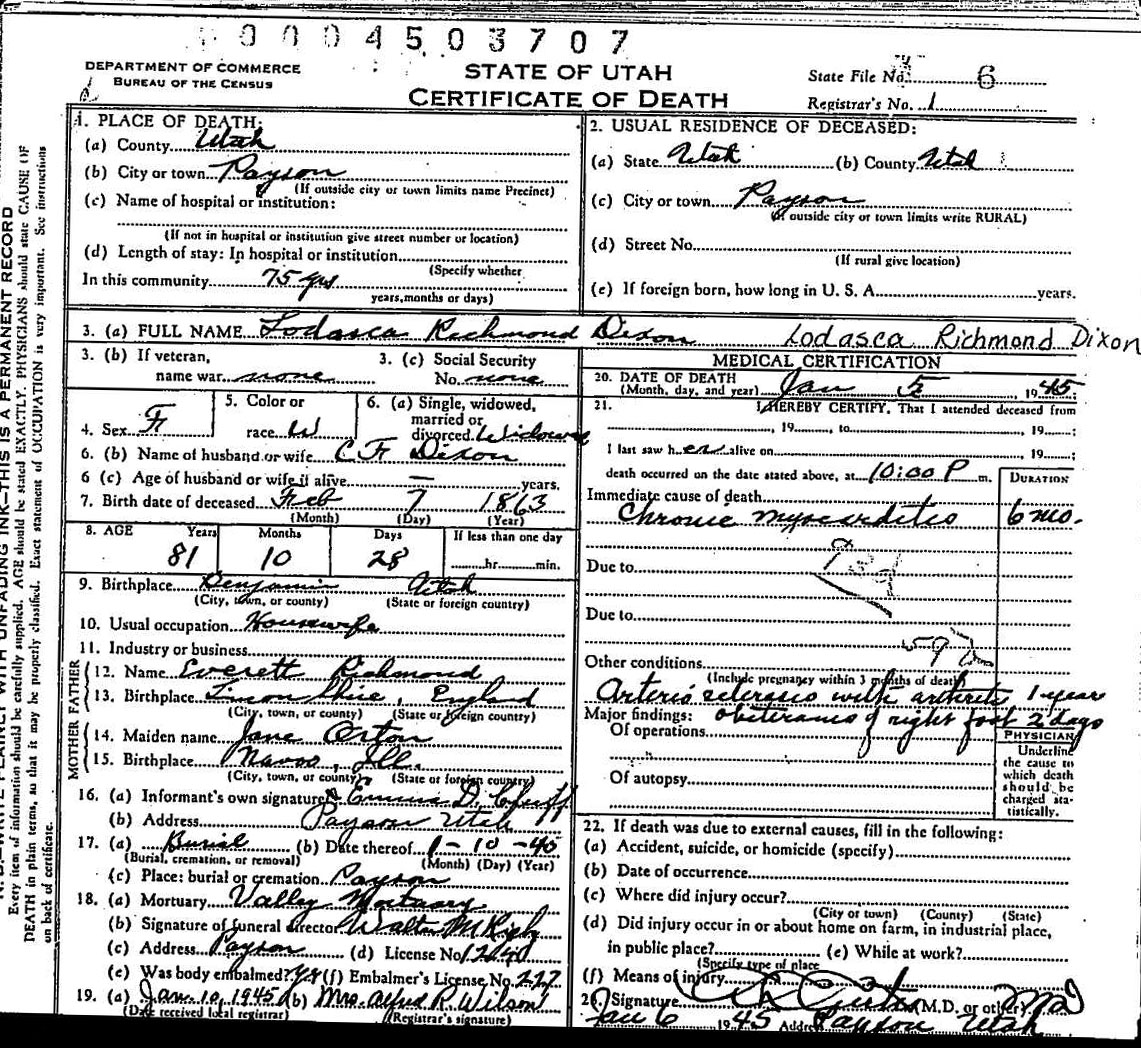 0004503707
DEPARTMENT OF COMMERCE
BUREAU OF THE CENSUS
STATE OF UTAH
CERTIFICATE OF DEATH
State File No. 6
Registrar's No. 1
N. B.—WRITE PLAINLY WITH UNFADING INK—THIS IS A PERMANENT RECORD
Every item of information should be carefully supplied. AGE should be stated EXACTLY. PHYSICIANS should state CAUSE OF
DEATH in plain terms, so that it may be properly classified. Exact statement of OCCUPATION is very important. See instructions
on back of certificate.
1. PLACE OF DEATH:
(a) County Utah
(b) City or town Payson
(If outside city or town limits name Precinct)
(c) Name of hospital or institution:
(If not in hospital or institution give street number or location)
(d) Length of stay: In hospital or institution
(Specify whether
In this community 75 yrs
years, months or days)
2. USUAL RESIDENCE OF DECEASED:
(a) State Utah (b) County Utah
(c) City or town Payson
(If outside city or town limits write RURAL)
(d) Street No.
(If rural give location)
(e) If foreign born, how long in U. S. A. years.
3. (a) FULL NAME Lodasca Richmond Dixon Lodasca Richmond Dixon
3. (b) If veteran, 3. (c) Social Security
name war none No. none
4. Sex F
5. Color or
race W
6. (a) Single, widowed,
married or
divorced Widowed
6. (b) Name of husband or wife C F Dixon
6 (c) Age of husband or wife if alive — years.
7. Birth date of deceased Feb 7 1863
(Month) (Day) (Year)
8. AGE Years Months Days If less than one day
81 10 28 hr. min.
9. Birthplace Benjamin Utah
(City, town, or county) (State or foreign country)
10. Usual occupation Housewife
11. Industry or business
FATHER
12. Name Everett Richmond
13. Birthplace Linconshire, England
(City, town, or county) (State or foreign country)
MOTHER
14. Maiden name Jane Orton
15. Birthplace Navoo, Ill.
(City, town, or county) (State or foreign country)
16. (a) Informant's own signature Emma D.
(b) Address Payson Utah
17. (a) Burial (b) Date thereof 1-10-45
(Burial, cremation, or removal) (Month) (Day) (Year)
(c) Place: burial or cremation Payson
18. (a) Mortuary Valley Mortuary
(b) Signature of funeral director Walter M
(c) Address Payson (d) License No. 1240
(e) Was body embalmed? Yes (f) Embalmer's License No. 227
19. (a) Jan. 10, 1945 (b) Mrs. Alfred R. Wilson
(Date received local registrar) (Registrar's signature)
MEDICAL CERTIFICATION
20. DATE OF DEATH
(Month, day, and year) Jan 5 1945
21. I HEREBY CERTIFY, That I attended deceased from
, 19 , to , 19 ;
I last saw her alive on , 19 ;
death occurred on the date stated above, at 10:00 P m.
DURATION
Immediate cause of death
Chronic myocarditis 6 mo.
Due to
Due to
Other conditions
(Include pregnancy within 3 months of death)
Arterio sclerosis with arthritis 1 year
Major findings: of right foot 2 days
Of operations
Of autopsy
PHYSICIAN
Underline
the cause to
which death
should be
charged sta-
tistically.
22. If death was due to external causes, fill in the following:
(a) Accident, suicide, or homicide (specify)
(b) Date of occurrence
(c) Where did injury occur?
(City or town) (County) (State)
(d) Did injury occur in or about home on farm, in industrial place,
in public place? (e) While at work?
(Specify type of place
(f) Means of injury
Signature (M.D. or other) MD
Jan 6 1945 Address Payson Utah